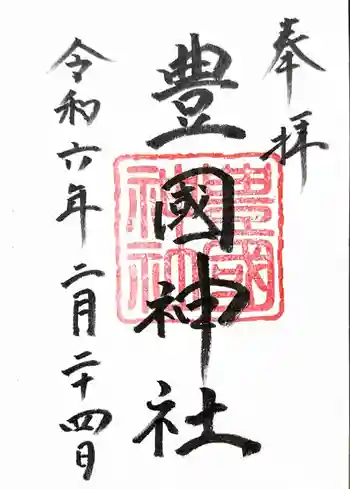 奉拝
豊國神社
豊國
神社
令和六年二月二十四日